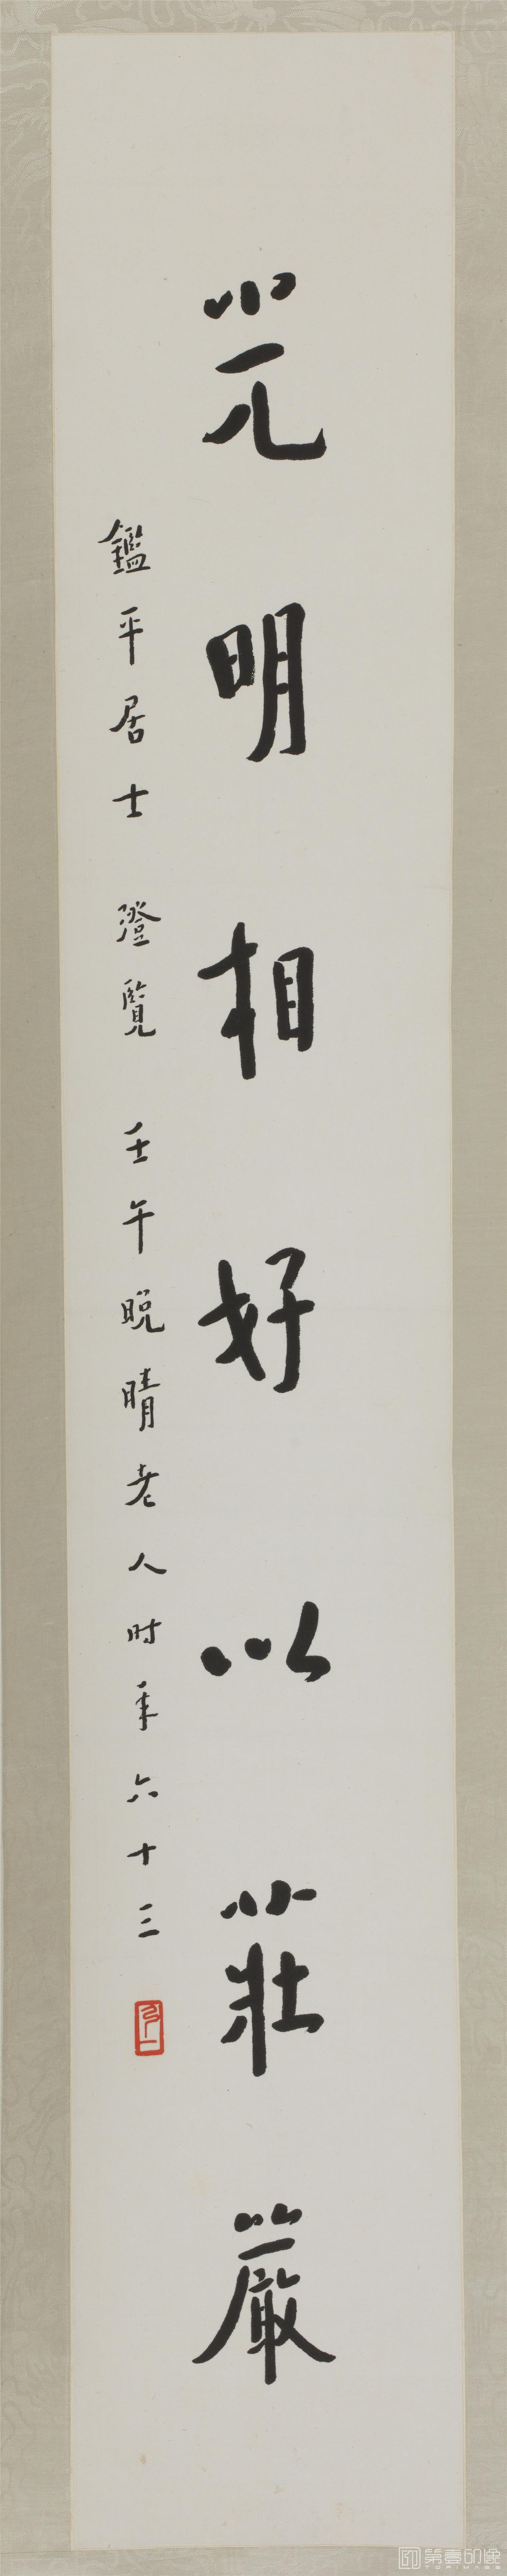 光明相好以莊嚴
鑑平居士 澄覽 壬午晚晴老人时年六十三
弘一
第壹印象
TOPIMAGE